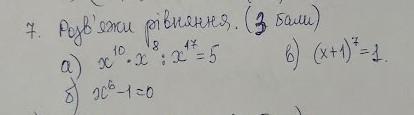 7. Розв'яжи рівняння. (3 бали)
а) x¹⁰ · x⁸ : x¹⁷ = 5 в) (x+1)⁷ = 1.
б) x⁶ - 1 = 0